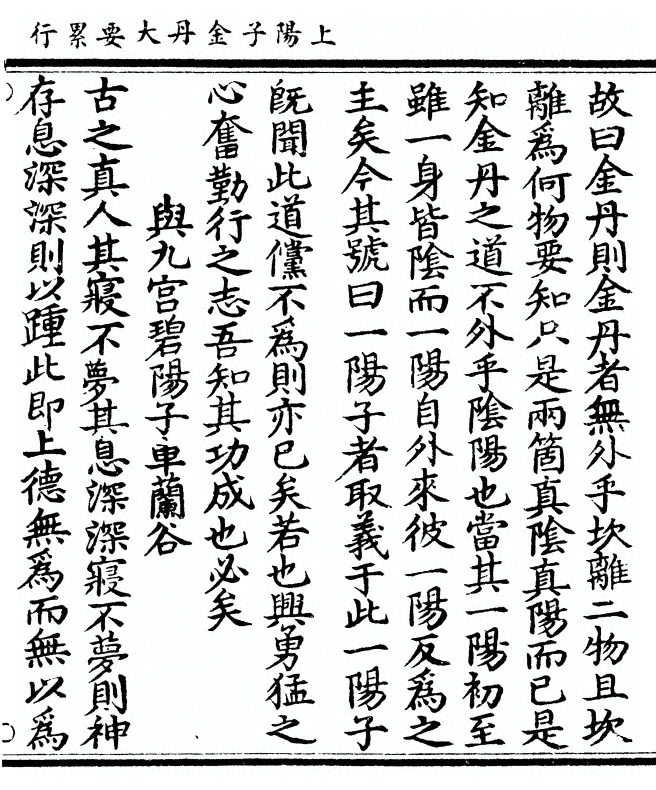 上陽子金丹大要累行
故曰金丹則金丹者無外乎坎離二物且坎
離爲何物要知只是兩箇真陰真陽而已是
知金丹之道不外乎陰陽也當其一陽初至
雖一身皆陰而一陽自外來彼一陽反爲之
主矣今其號曰一陽子者取義于此一陽子
既聞此道儻不爲則亦已矣若也興勇猛之
心奮勤行之志吾知其功成也必矣
與九宫碧陽子車蘭谷
古之真人其寢不夢其息深深寢不夢則神
存息深深則以踵此即上德無爲而無以爲